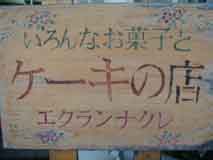 いろんなお菓子と
ケーキの店
エクランナクレ